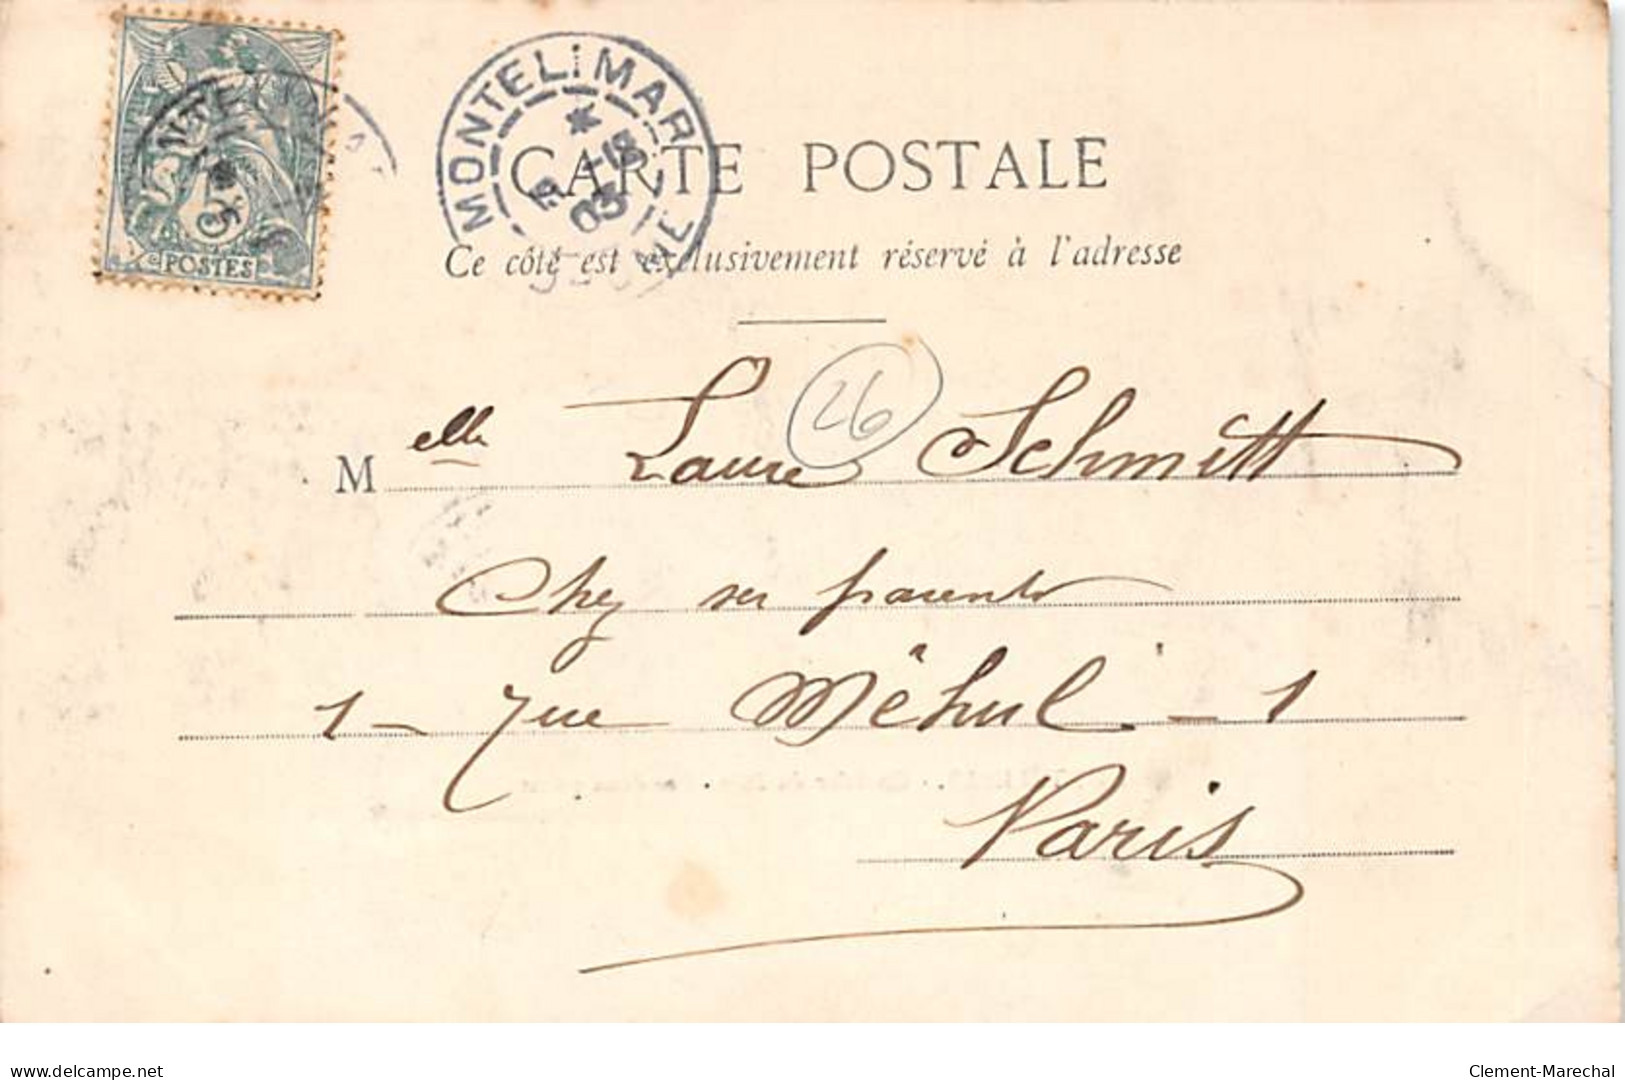 MONTELIMAR
5
POSTES
CARTE POSTALE
Ce côté est exclusivement réservé à l'adresse
26
Melle Laure Schmitt
Chez ses parents
1 - rue Méhul - 1
Paris
delcampe.net
Clement-Marechal